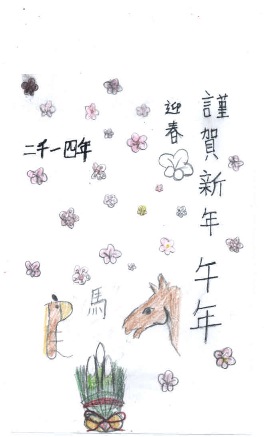 謹賀新年 午年
迎春
二千一四年
馬